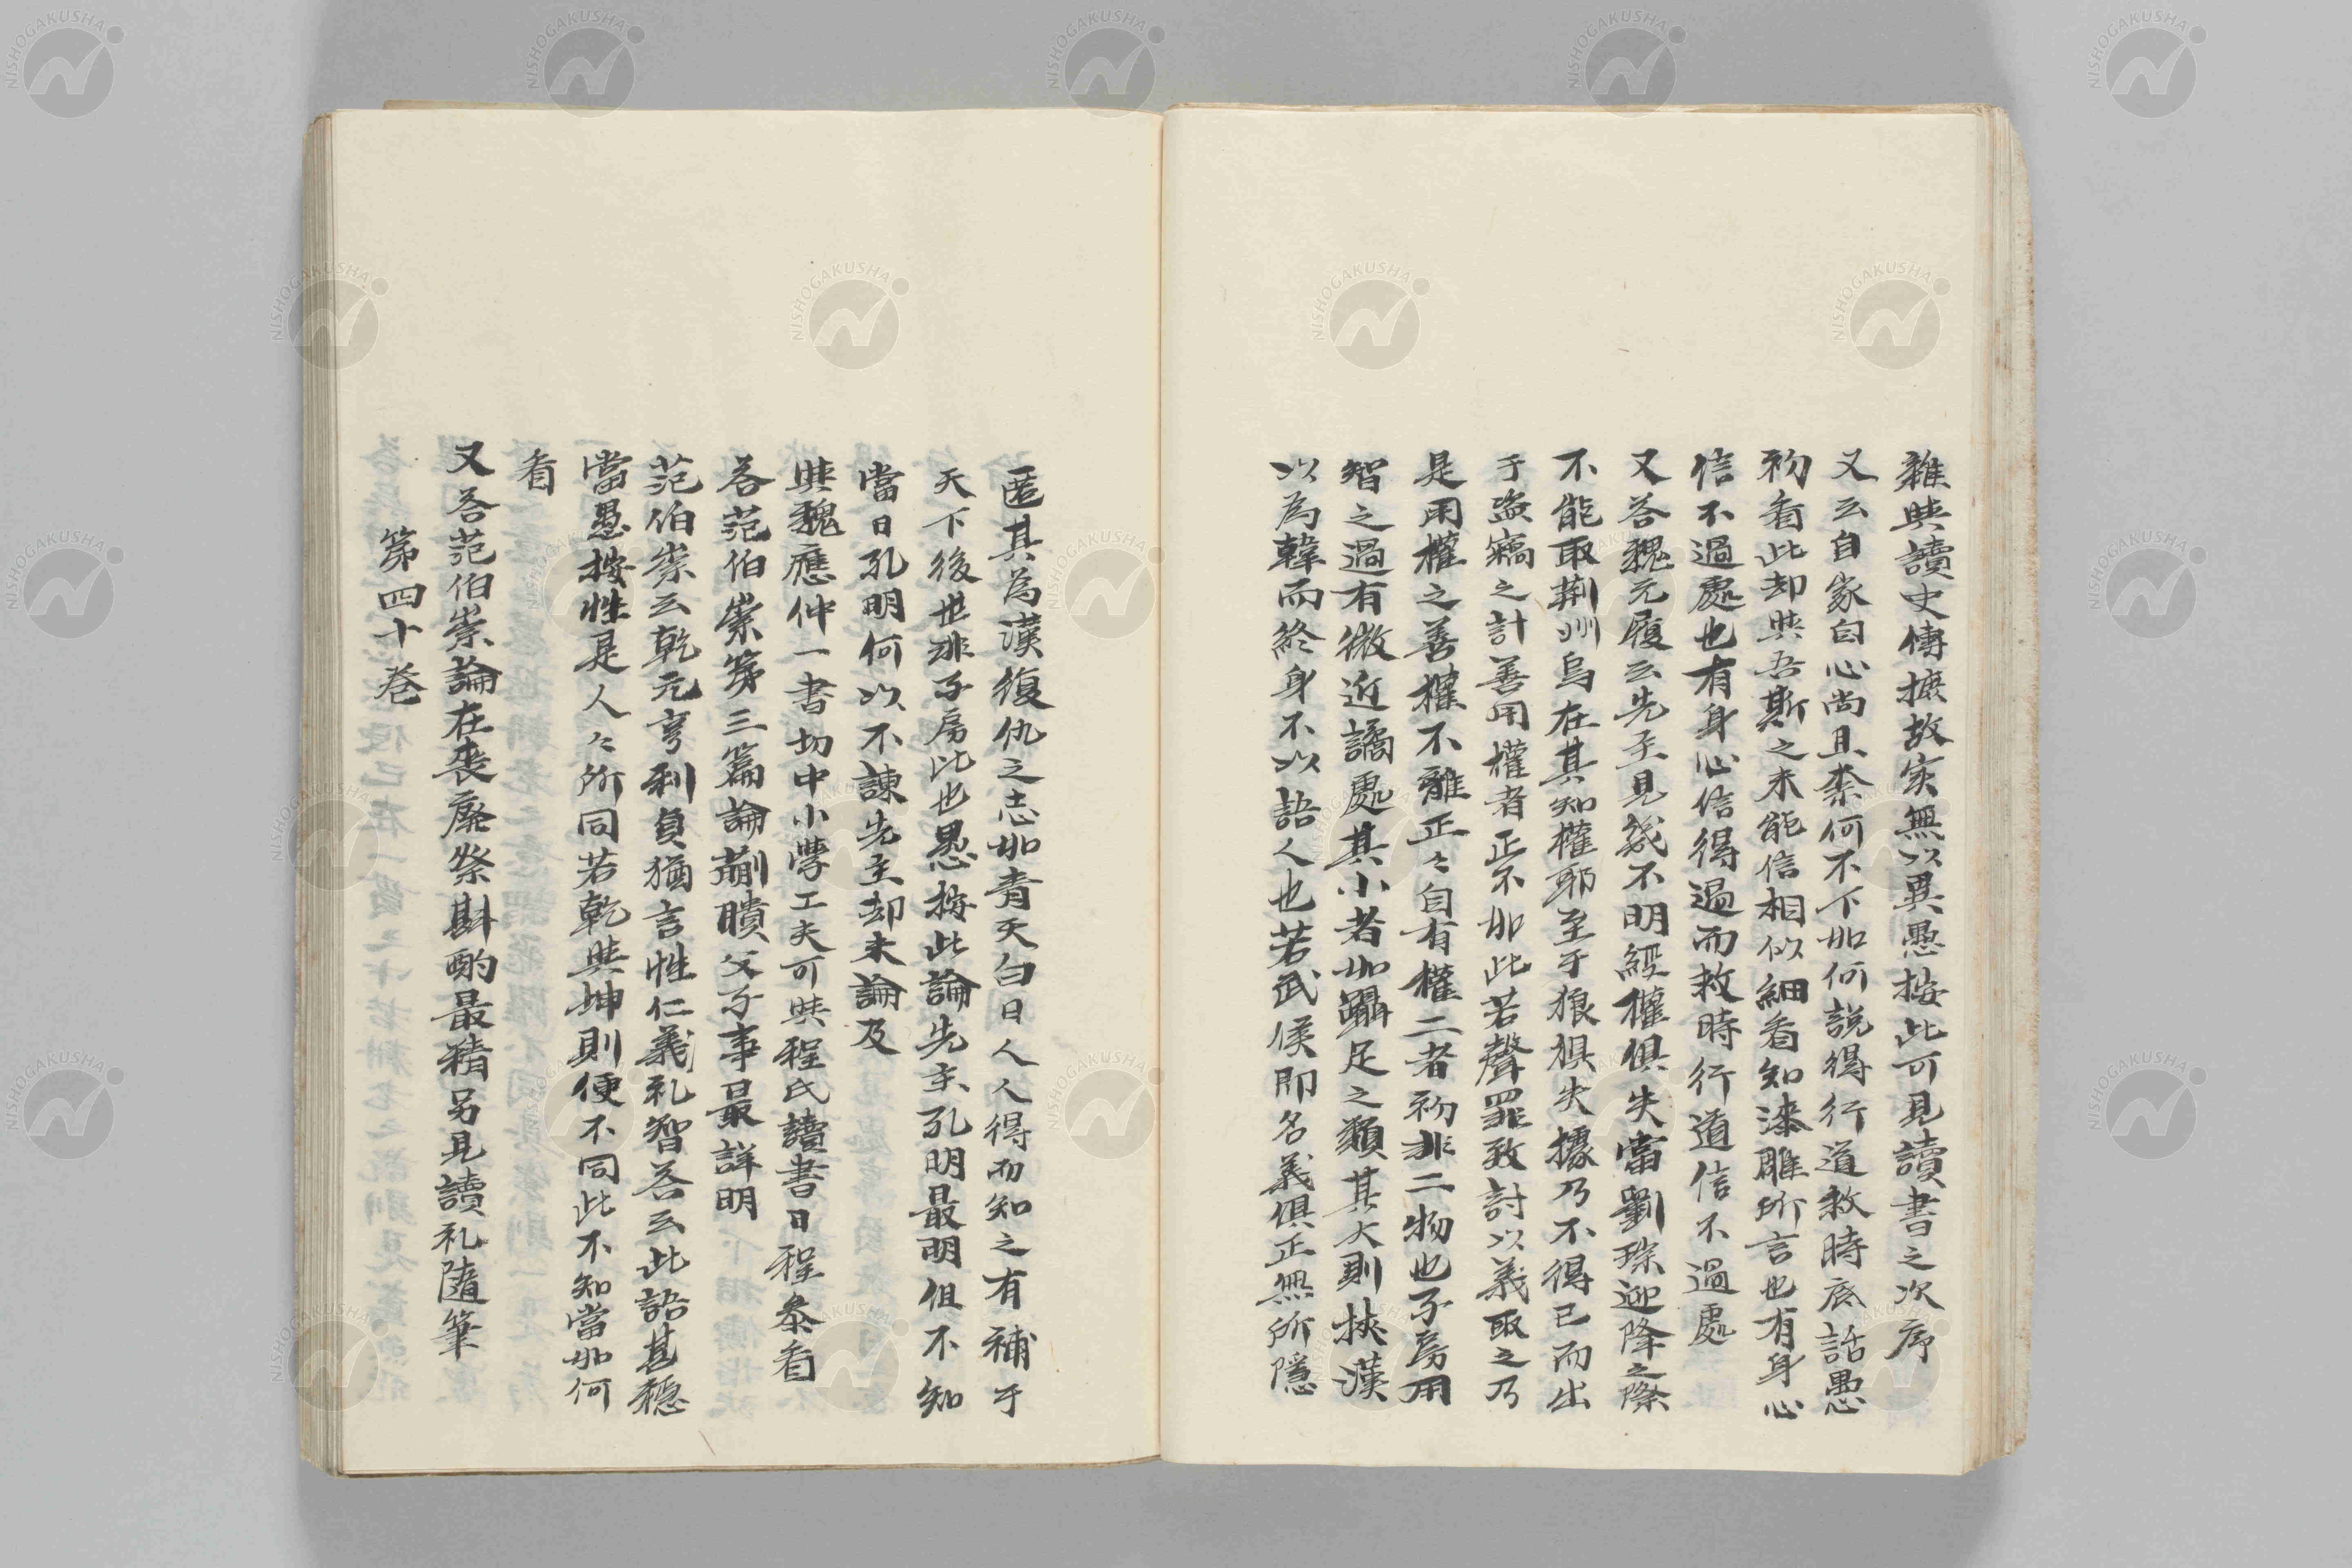 雜與讀史傳摭故實無以異愚按此可見讀書之次序
又云自家自心尚且柰何不下如何説得行道救時底話愚
初看此却與吾斯之未能信相似細看知漆雕所言也有身心
信不過處也有身心信得過而救時行道信不過處
又答魏元履云先主見幾不明經權俱失當劉琮迎降之際
不能取荆州烏在其知權耶至于狼狽失據乃不得已而出
于盗竊之計善用權者正不如此若聲罪致討以義取之乃
是用權之善權不離正々自有權二者初非二物也子房用
智之過有微近譎處其小者如躡足之類其大則挾漢
以為韓而終身不以語人也若武侯即名義俱正無所隱
匿其為漢復仇之志如青天白日人人得而知之有補于
天下後世非子房比也愚按此論先主孔明最明但不知
當日孔明何以不諫先主却未論及
與魏應仲一書切中小學工夫可與程氏讀書日程叅看
答范伯崇第三篇論蒯聵父子事最詳明
范伯崇云乾元亨利貞猶言性仁義礼智答云此語甚穩
當愚按性是人々所同若乾與坤則便不同此不知當如何
看
又答范伯崇論在喪廢祭斟酌最精另見讀礼隨筆
第四十卷
NISHOGAKUSHA